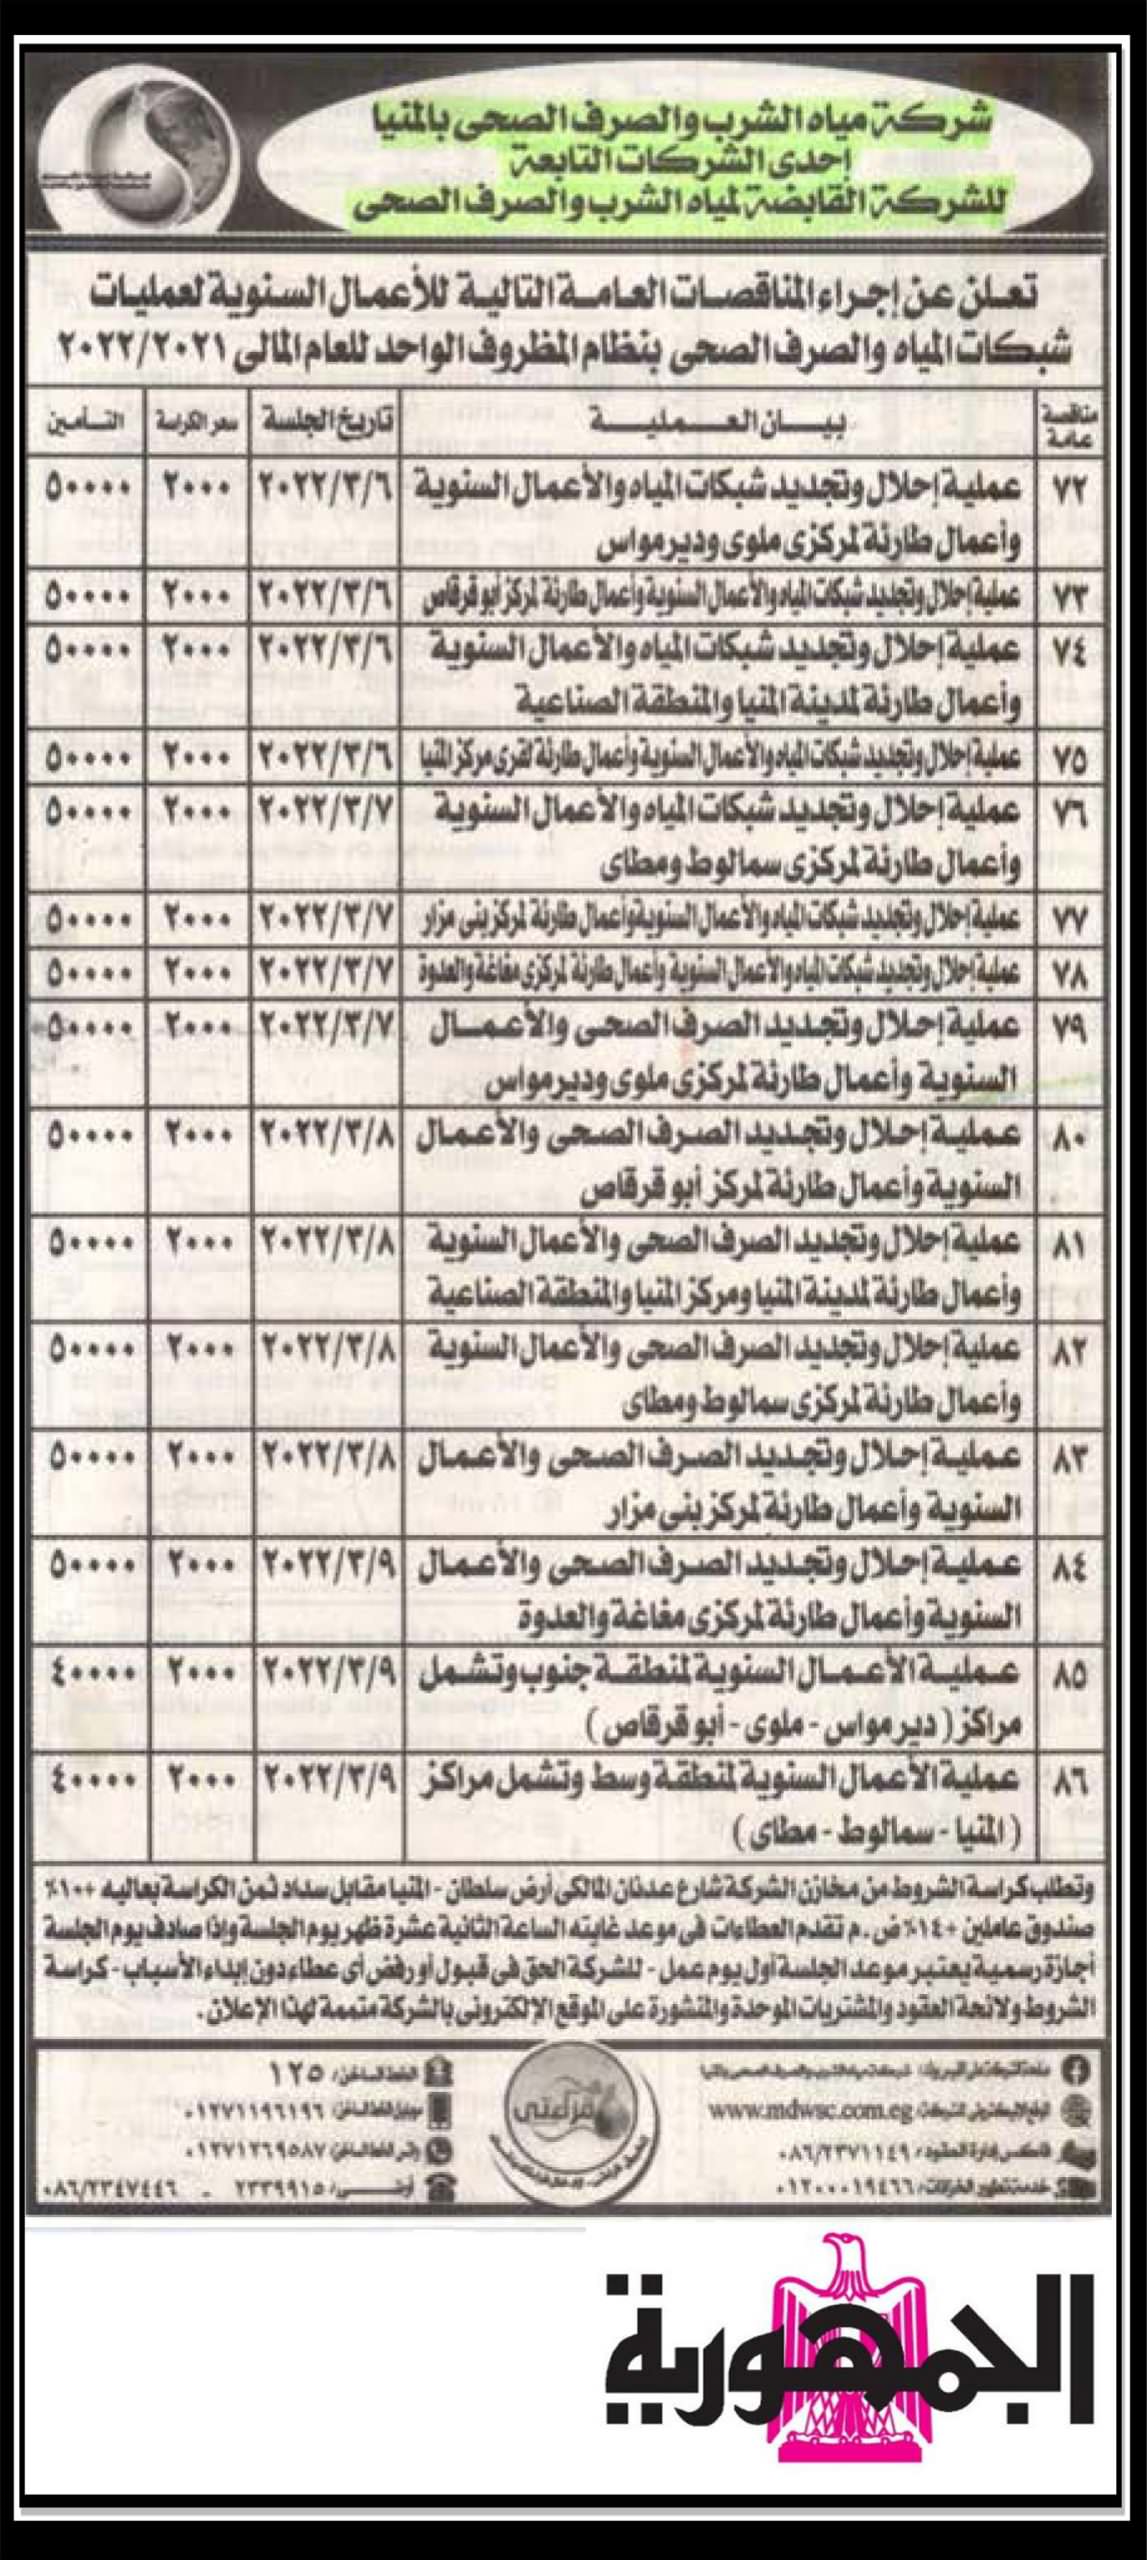 شركة مياه الشرب والصرف الصحى بالمنيا
إحدى الشركات التابعة
للشركة القابضة لمياه الشرب والصرف الصحى
تعلن عن إجراء المناقصات العامة التالية للأعمال السنوية لعمليات
شبكات المياه والصرف الصحى بنظام المظروف الواحد للعام المالى ٢٠٢٢/٢٠٢١
مناقصة عامة بيان العملية تاريخ الجلسة سعر الكراسة التأمين
٧٢ عملية إحلال وتجديد شبكات المياه والأعمال السنوية ٢٠٢٢/٣/٦ ٢٠٠٠ ٥٠٠٠٠
وأعمال طارئة لمركزى ملوى وديرمواس
٧٣ عملية إحلال وتجديد شبكات المياه والأعمال السنوية وأعمال طارئة لمركز أبو قرقاص ٢٠٢٢/٣/٦ ٢٠٠٠ ٥٠٠٠٠
٧٤ عملية إحلال وتجديد شبكات المياه والأعمال السنوية ٢٠٢٢/٣/٦ ٢٠٠٠ ٥٠٠٠٠
وأعمال طارئة لمدينة المنيا والمنطقة الصناعية
٧٥ عملية إحلال وتجديد شبكات المياه والأعمال السنوية وأعمال طارئة لقرى مركز المنيا ٢٠٢٢/٣/٦ ٢٠٠٠ ٥٠٠٠٠
٧٦ عملية إحلال وتجديد شبكات المياه والأعمال السنوية ٢٠٢٢/٣/٧ ٢٠٠٠ ٥٠٠٠٠
وأعمال طارئة لمركزى سمالوط ومطاى
٧٧ عملية إحلال وتجديد شبكات المياه والأعمال السنوية وأعمال طارئة لمركز بنى مزار ٢٠٢٢/٣/٧ ٢٠٠٠ ٥٠٠٠٠
٧٨ عملية إحلال وتجديد شبكات المياه والأعمال السنوية وأعمال طارئة لمركزى مغاغة والعدوة ٢٠٢٢/٣/٧ ٢٠٠٠ ٥٠٠٠٠
٧٩ عملية إحلال وتجديد الصرف الصحى والأعمال ٢٠٢٢/٣/٧ ٢٠٠٠ ٥٠٠٠٠
السنوية وأعمال طارئة لمركزى ملوى وديرمواس
٨٠ عملية إحلال وتجديد الصرف الصحى والأعمال ٢٠٢٢/٣/٨ ٢٠٠٠ ٥٠٠٠٠
السنوية وأعمال طارئة لمركز أبو قرقاص
٨١ عملية إحلال وتجديد الصرف الصحى والأعمال السنوية ٢٠٢٢/٣/٨ ٢٠٠٠ ٥٠٠٠٠
وأعمال طارئة لمدينة المنيا ومركز المنيا والمنطقة الصناعية
٨٢ عملية إحلال وتجديد الصرف الصحى والأعمال السنوية ٢٠٢٢/٣/٨ ٢٠٠٠ ٥٠٠٠٠
وأعمال طارئة لمركزى سمالوط ومطاى
٨٣ عملية إحلال وتجديد الصرف الصحى والأعمال ٢٠٢٢/٣/٨ ٢٠٠٠ ٥٠٠٠٠
السنوية وأعمال طارئة لمركز بنى مزار
٨٤ عملية إحلال وتجديد الصرف الصحى والأعمال ٢٠٢٢/٣/٩ ٢٠٠٠ ٥٠٠٠٠
السنوية وأعمال طارئة لمركزى مغاغة والعدوة
٨٥ عملية الأعمال السنوية لمنطقة جنوب وتشمل ٢٠٢٢/٣/٩ ٢٠٠٠ ٤٠٠٠٠
مراكز (ديرمواس - ملوى - أبو قرقاص)
٨٦ عملية الأعمال السنوية لمنطقة وسط وتشمل مراكز ٢٠٢٢/٣/٩ ٢٠٠٠ ٤٠٠٠٠
(المنيا - سمالوط - مطاى)
وتطلب كراسة الشروط من مخازن الشركة شارع عدنان المالكى أرض سلطان - المنيا مقابل سداد ثمن الكراسة بعاليه +١٠٪
صندوق عاملين +١٤٪ ض.م تقدم العطاءات فى موعد غايته الساعة الثانية عشرة ظهر يوم الجلسة وإذا صادف يوم الجلسة
أجازة رسمية يعتبر موعد الجلسة أول يوم عمل - للشركة الحق فى قبول أو رفض أى عطاء دون إبداء الأسباب - كراسة
الشروط ولائحة العقود والمشتريات الموحدة والمنشورة على الموقع الإلكترونى بالشركة متممة لهذا الإعلان.
الخط الساخن: ١٢٥
www.mdwsc.com.eg
موبايل الخط الساخن: ٠١٢٧١١٩٦١٩٦
فاكس إدارة العقود: ٠٨٦/٢٣٧١١٤٩
٠١٢٧١٢٦٩٥٨٧
٠١٢٠٠٠١٩٤٦٦
أرضى: ٢٣٣٩٩١٥ - ٠٨٦/٢٣٤٧٤٤٦
قراءتى
الجمهورية